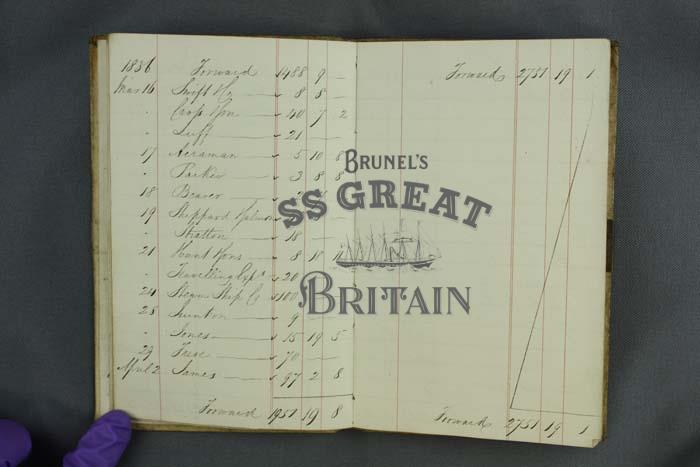 1836 Forward 1488 9 —
Mar 16 Swift Co 8 8 —
. Cross Hen 40 7 2
. Luff 21 — —
17 Acraman 5 10
. Parker 3 8 8
18 Beaver
19 Sheppard
. Stratton 18 —
21 Hunt Hens 8 10
. Travelling Exps 20
24 Steam Ship Co 100
28 9
. Jones 15 19 5
29 70 —
April 2 James 97 2 8
Forward 1951 19 8
Forward 2751 19 1
Forward 2751 19 1
BRUNEL'S
SS GREAT
BRITAIN